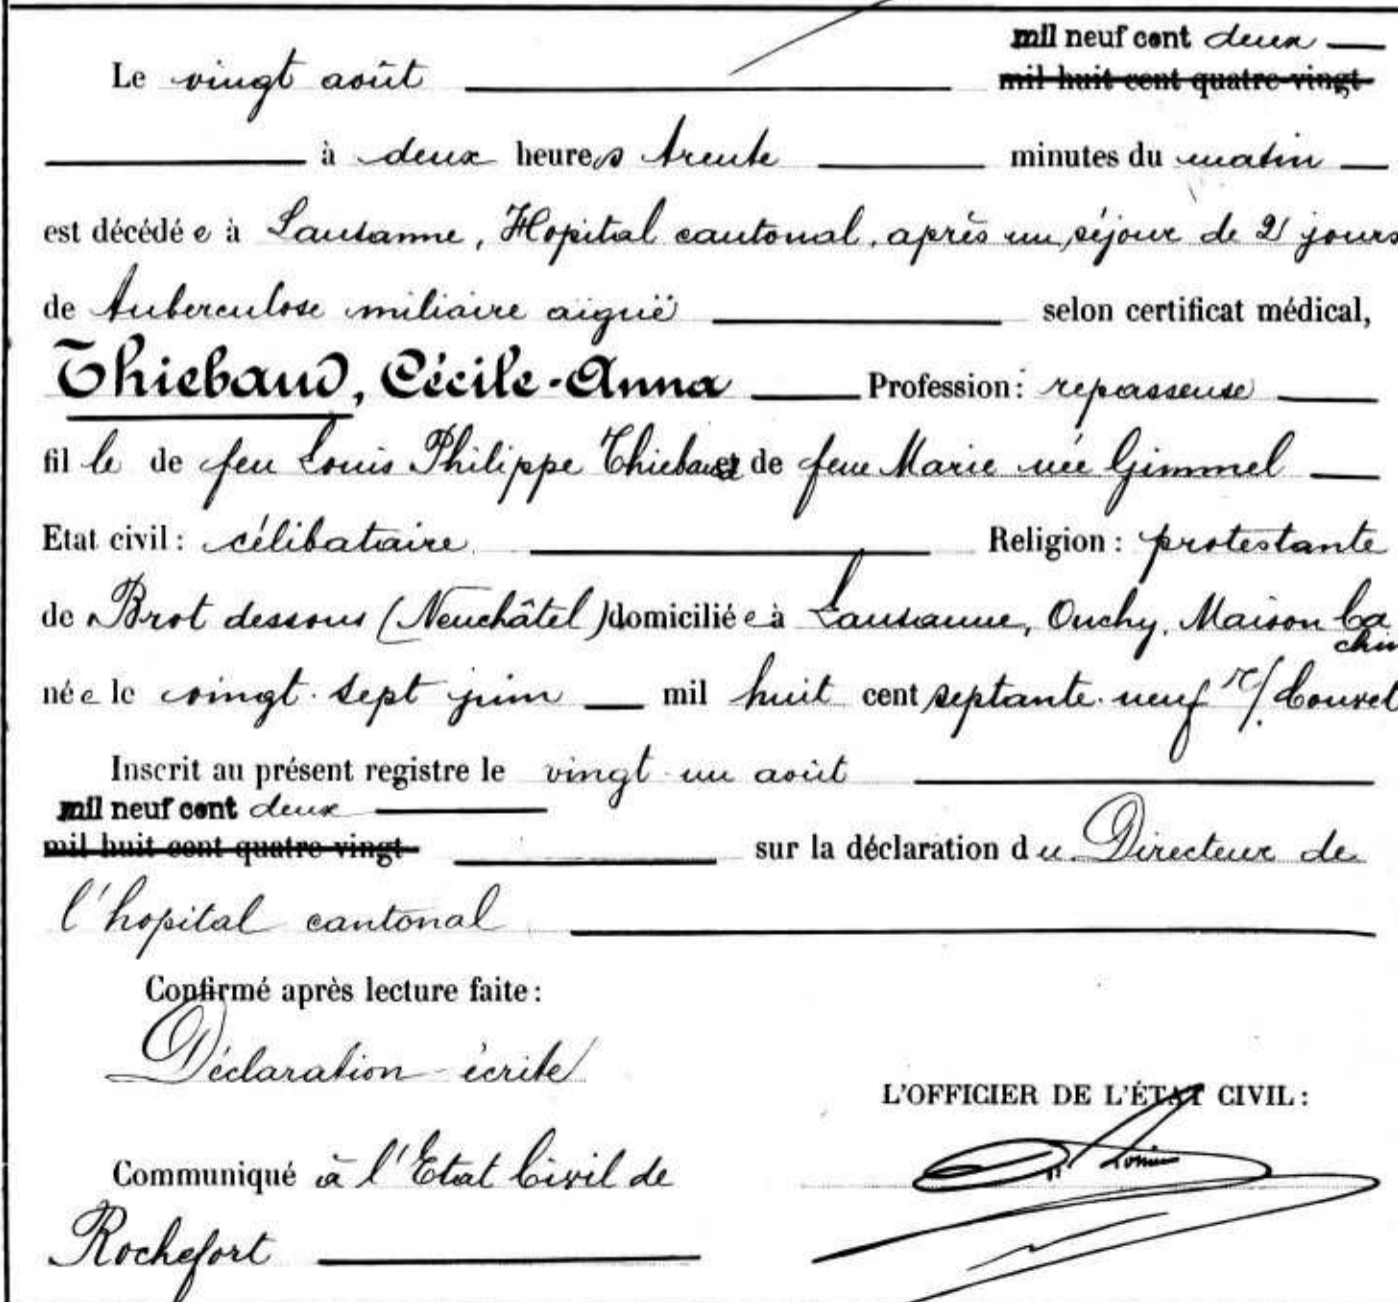 mil neuf cent deux
Le vingt août mil huit cent quatre-vingt
à deux heures trente minutes du matin
est décédée à Lausanne, Hopital cantonal, après un séjour de 2 jours
de tuberculose miliaire aiguë selon certificat médical,
Thiebaud, Cécile-Anna Profession: repasseuse
fille de feu Louis Philippe Thiebaud et de feue Marie née Gimmel
Etat civil: célibataire Religion: protestante
de Brot dessous (Neuchâtel) domiciliée à Lausanne, Ouchy, Maison Ca
chin
née le vingt-sept juin mil huit cent septante-neuf à Couvet
Inscrit au présent registre le vingt-un août
mil neuf cent deux
mil huit cent quatre-vingt sur la déclaration du Directeur de
l'hopital cantonal
Confirmé après lecture faite:
Déclaration écrite
L'OFFICIER DE L'ÉTAT CIVIL:
Communiqué à l'Etat Civil de
Rochefort